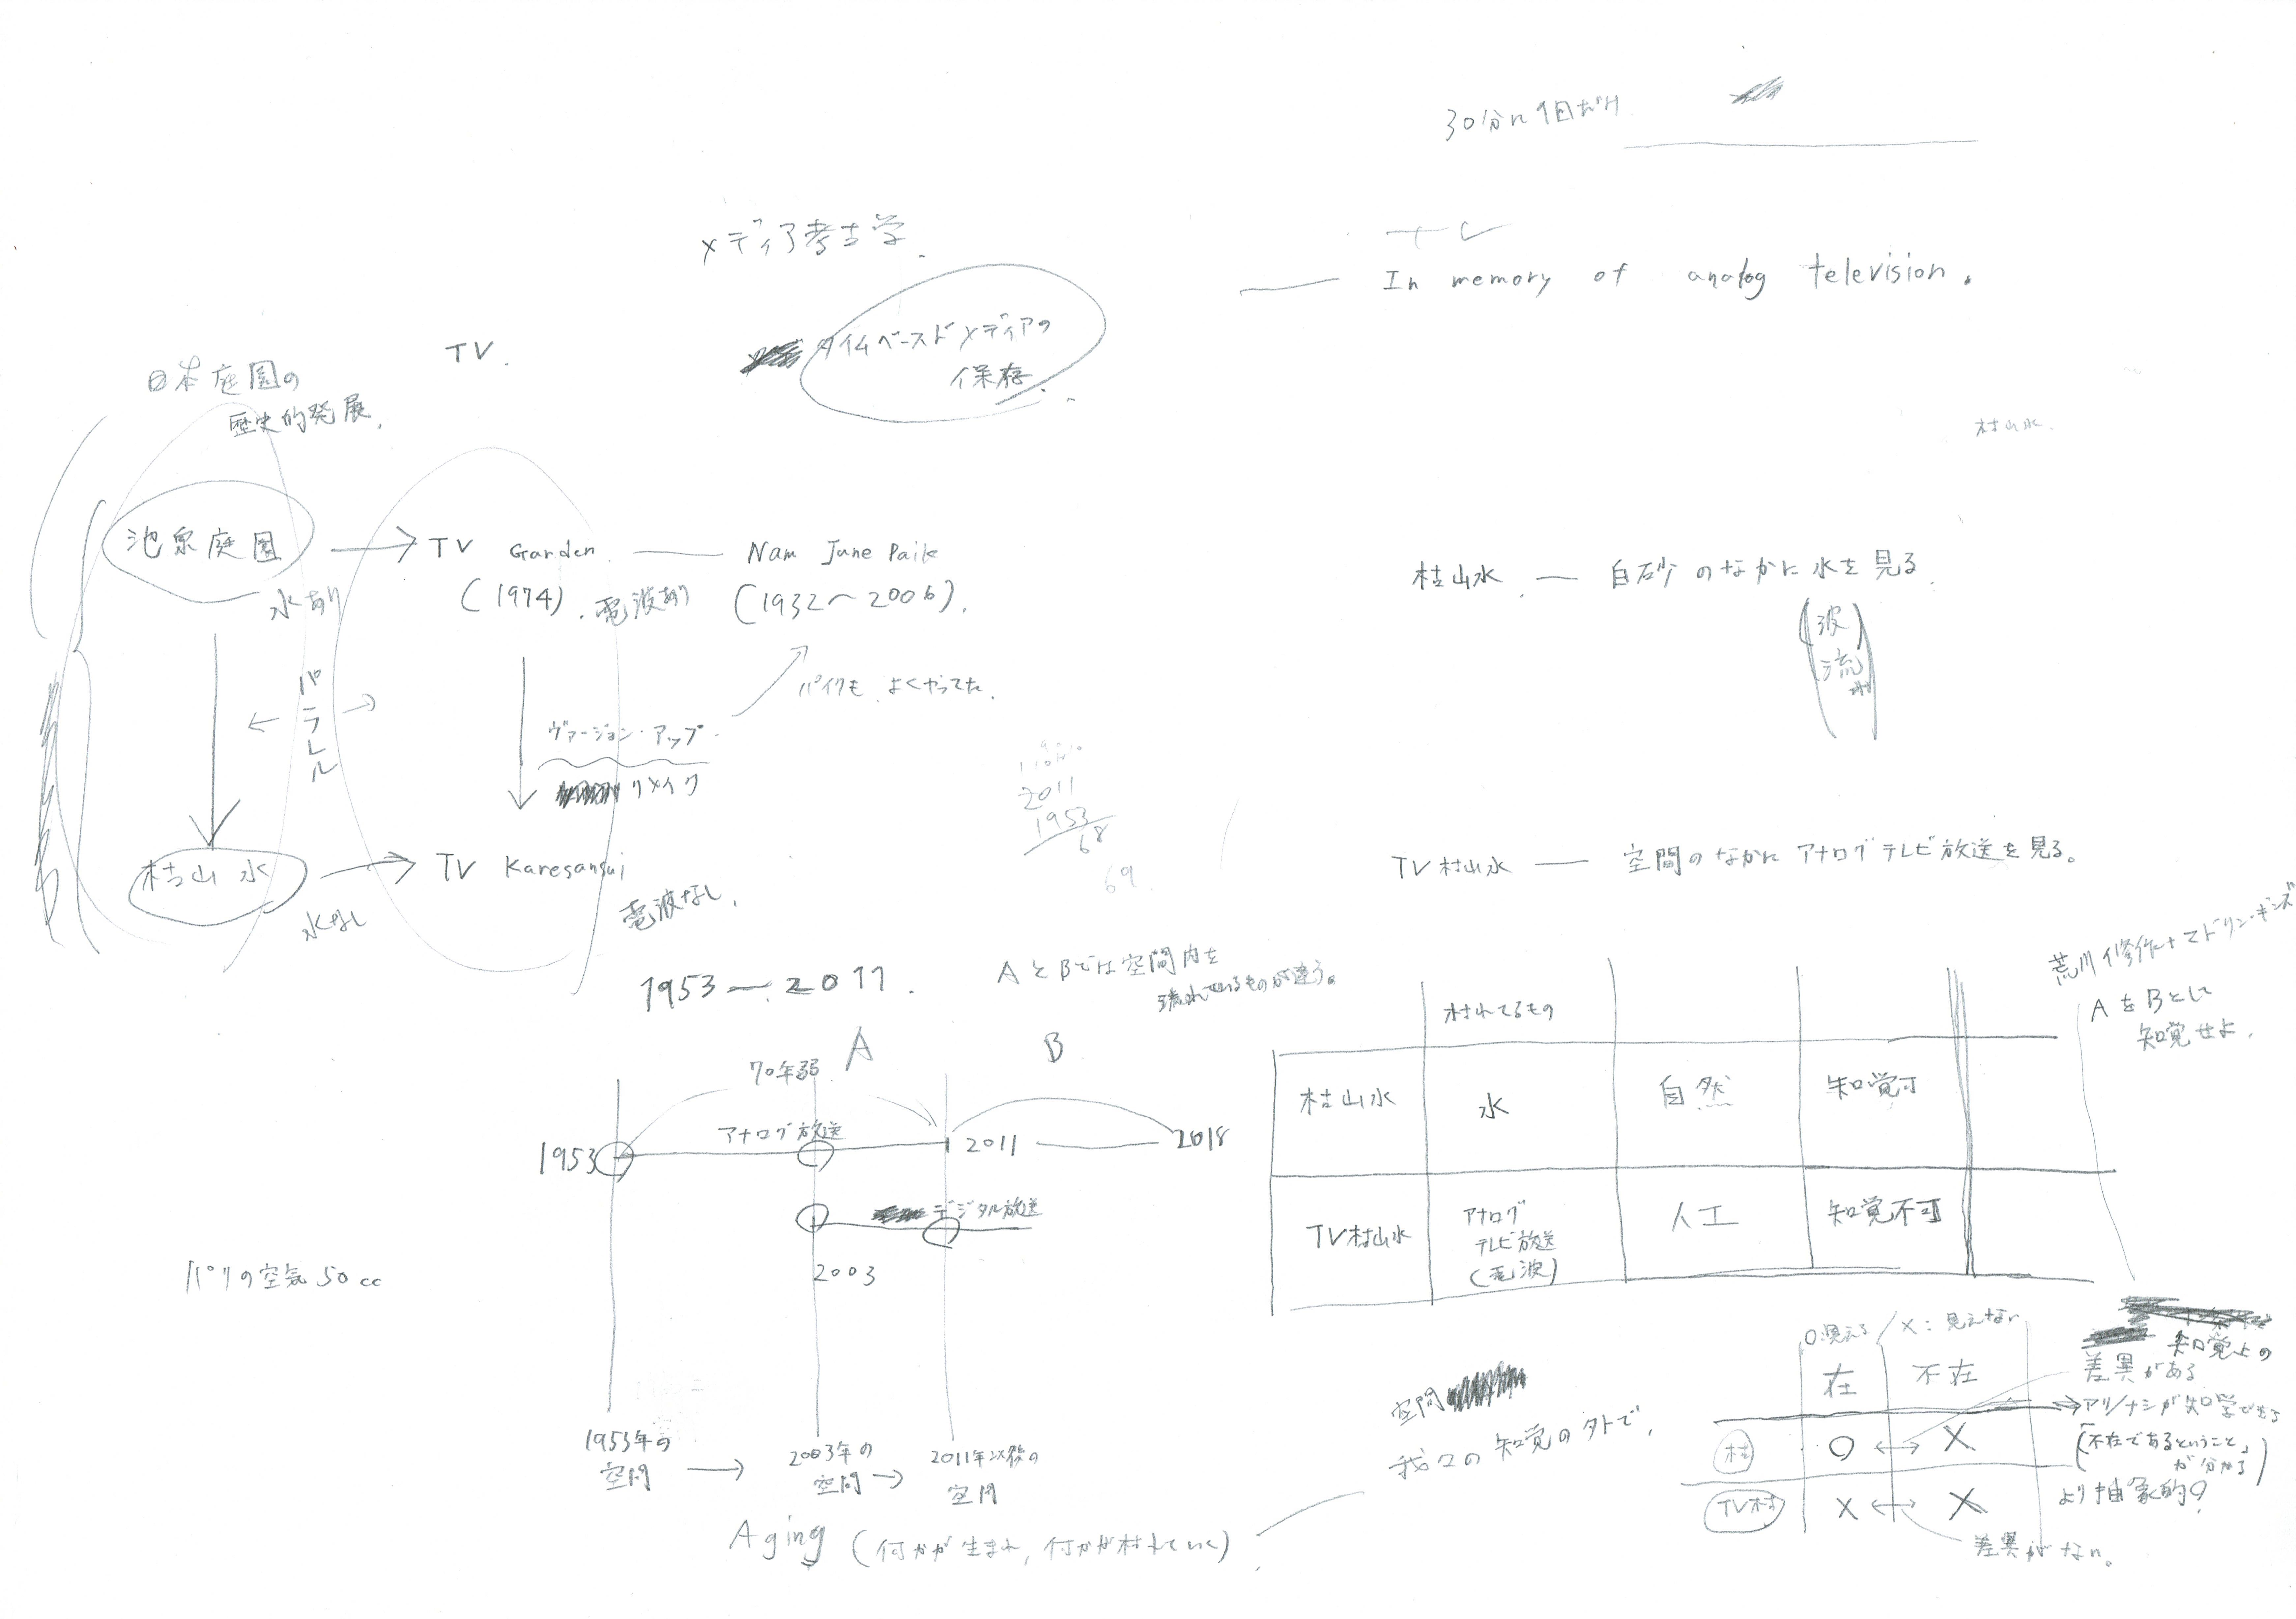 30分に1回だけ
メディア考古学
In memory of analog television.
タイムベースドメディアの
保存
TV.
日本庭園の
歴史的発展.
枯山水.
池泉庭園
水あり
TV Garden
(1974).
電波あり
Nam June Paik
(1932〜2006).
パイクも よくやってた.
パラレル
ヴァージョン・アップ
リメイク
枯山水
水なし
TV Karesansui
電波なし.
2011
1953
68
69.
枯山水 — 白砂のなかに水を見る.
(波)
流
TV枯山水 — 空間のなかに アナログテレビ放送を見る。
1953 — 2011.
AとBでは空間内を
流れているものが違う。
A
B
70年弱
アナログ放送
1953
2011
2018
デジタル放送
2003
パリの空気50cc
1953年の
空間
2003年の
空間
2011年以後の
空間
Aging (何かが生まれ,何かが枯れていく)
空間
我々の知覚の外で,
荒川修作+マドリン・ギンズ
AをBとして
知覚せよ.
枯れてるもの
枯山水
水
自然
知覚可
TV枯山水
アナログ
テレビ放送
(電波)
人工
知覚不可
O:見える / X:見えない
在
不在
枯
O ↔ X
TV枯
X ↔ X
知覚上の
差異がある
アリ/ナシが知覚できる
(「不在であるということ」
が分かる)
より抽象的?
差異がない。